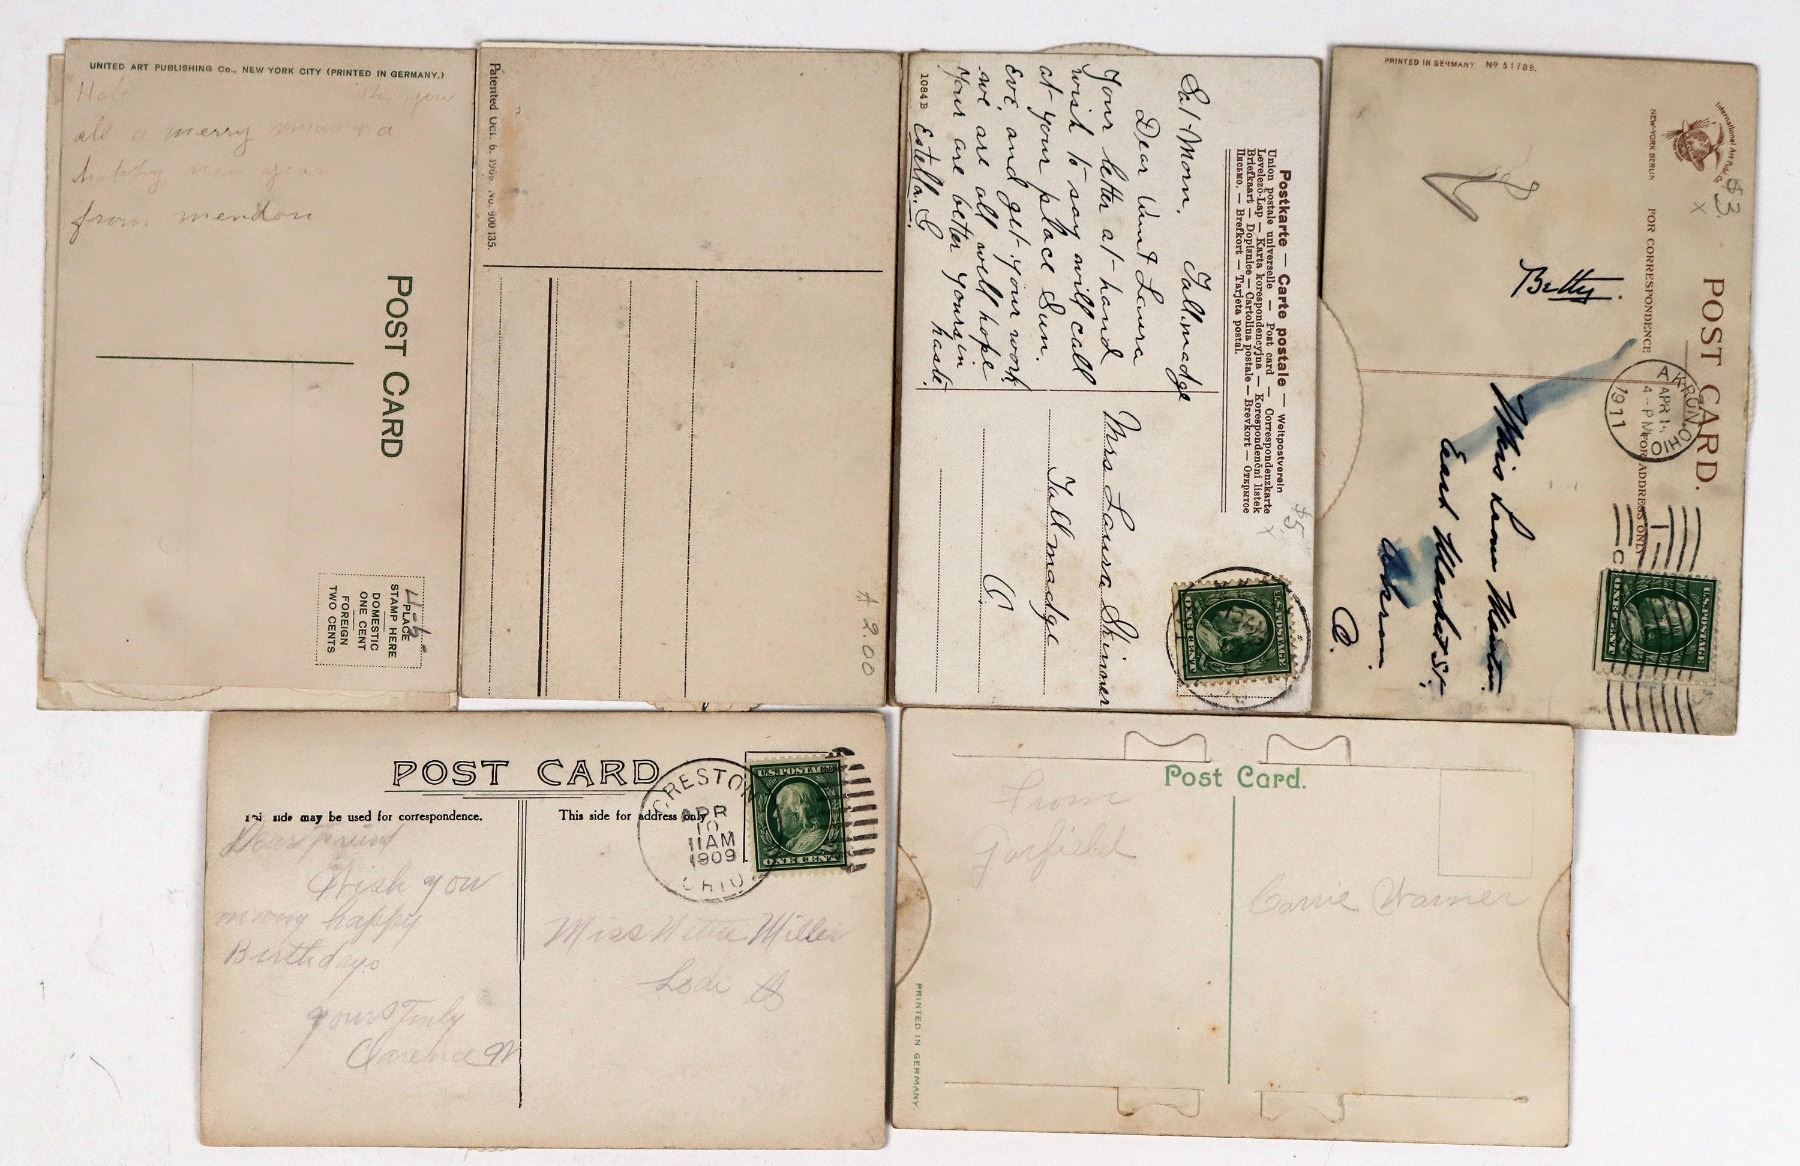 UNITED ART PUBLISHING Co., NEW YORK CITY (PRINTED IN GERMANY.)
you
all a merry xmas & a
happy new year
from mendon
POST CARD
PLACE
STAMP HERE
DOMESTIC
ONE CENT
FOREIGN
TWO CENTS
Patented Oct. 6, 1909, No. 900135.
2.00
1084 B
Postkarte — Carte postale — Weltpostverein
Union postale universelle — Post card — Correspondenzkarte
Levelező-Lap — Karta korespondencyjna — Korespondenční lístek
Briefkaart — Dopisnice — Cartolina postale — Brevkort — Открытое
Письмо. — Brefkort — Tarjeta postal.
$5
Sat Morn. Tallmadge
Dear Aunt Laura
Your letter at hand
wish to say will call
at your place Sun.
Eve, and get your work
we are all well hope
your are better yours in
haste
Estella. C
Mrs Laura Skinner
Tallmadge
O.
U.S. POSTAGE
ONE CENT
PRINTED IN GERMANY Nº 51788.
International Art
NEW-YORK BERLIN
$3.
x
POST CARD.
FOR CORRESPONDENCE
FOR ADDRESS ONLY
Betty.
AKRON, OHIO
APR
4-PM
1911
East Market St,
Akron
O.
U.S. POSTAGE
ONE CENT
POST CARD
side may be used for correspondence.
This side for address only
CRESTON
APR
10
11AM
1909
OHIO
U.S. POSTAGE
ONE CENT
Dear Friend
Wish you
many happy
Birthdays
yours Truly
Clarence M
Miss Nettie Miller
Lodi O
Post Card.
From
Garfield
Carrie Warner
PRINTED IN GERMANY.